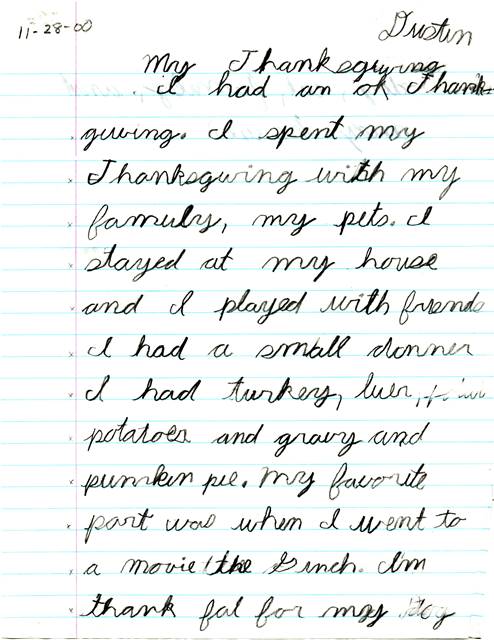 11-28-00
Dustin
My Thanksgiving
I had an ok Thanks-
giving. I spent my
Thanksgiving with my
famuly, my pets. I
stayed at my house
and I played with friends
I had a small donner
I had turkey,
potatoes and gravy and
pumken pie. My favorite
part was when I went to
a movie the Grinch. I'm
thank ful for my dog